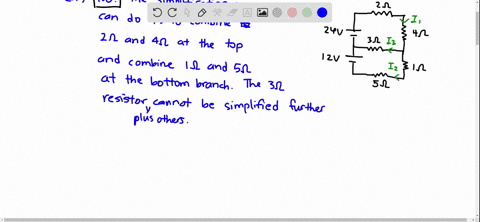 No.
can do
2Ω and 4Ω at the top
and combine 1Ω and 5Ω
at the bottom branch. The 3Ω
resistor cannot be simplified further
plus others.
2Ω
I₁
24V
4Ω
3Ω
I₃
12V
I₂
1Ω
5Ω